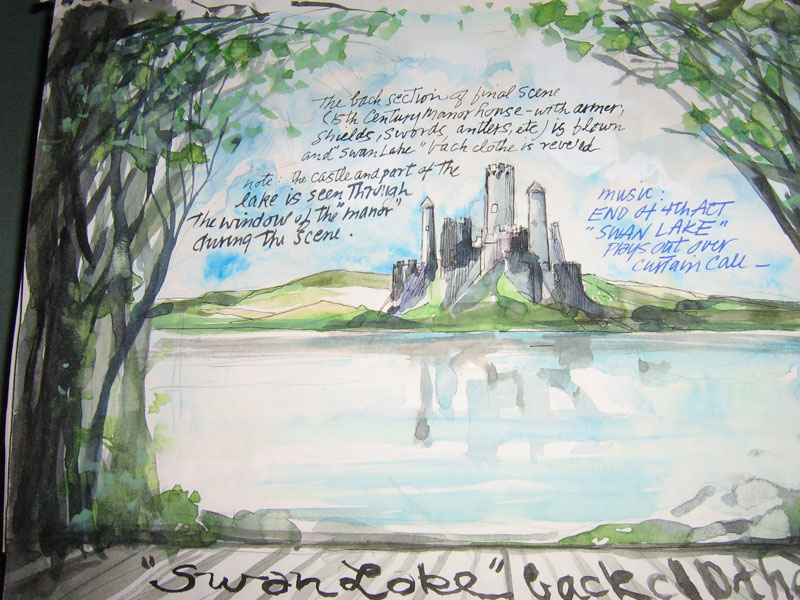 The back section of final scene
(15th Century Manor house - with armer,
shields, swords, antlers, etc) is blown
and "Swan Lake" back clothe is reve'ed
note: the castle and part of the
lake is seen Through
The window of the "manor"
during The scene.
music:
END of 4th ACT
"SWAN LAKE"
Plays out over
curtain call —
"Swan Lake" back clothe